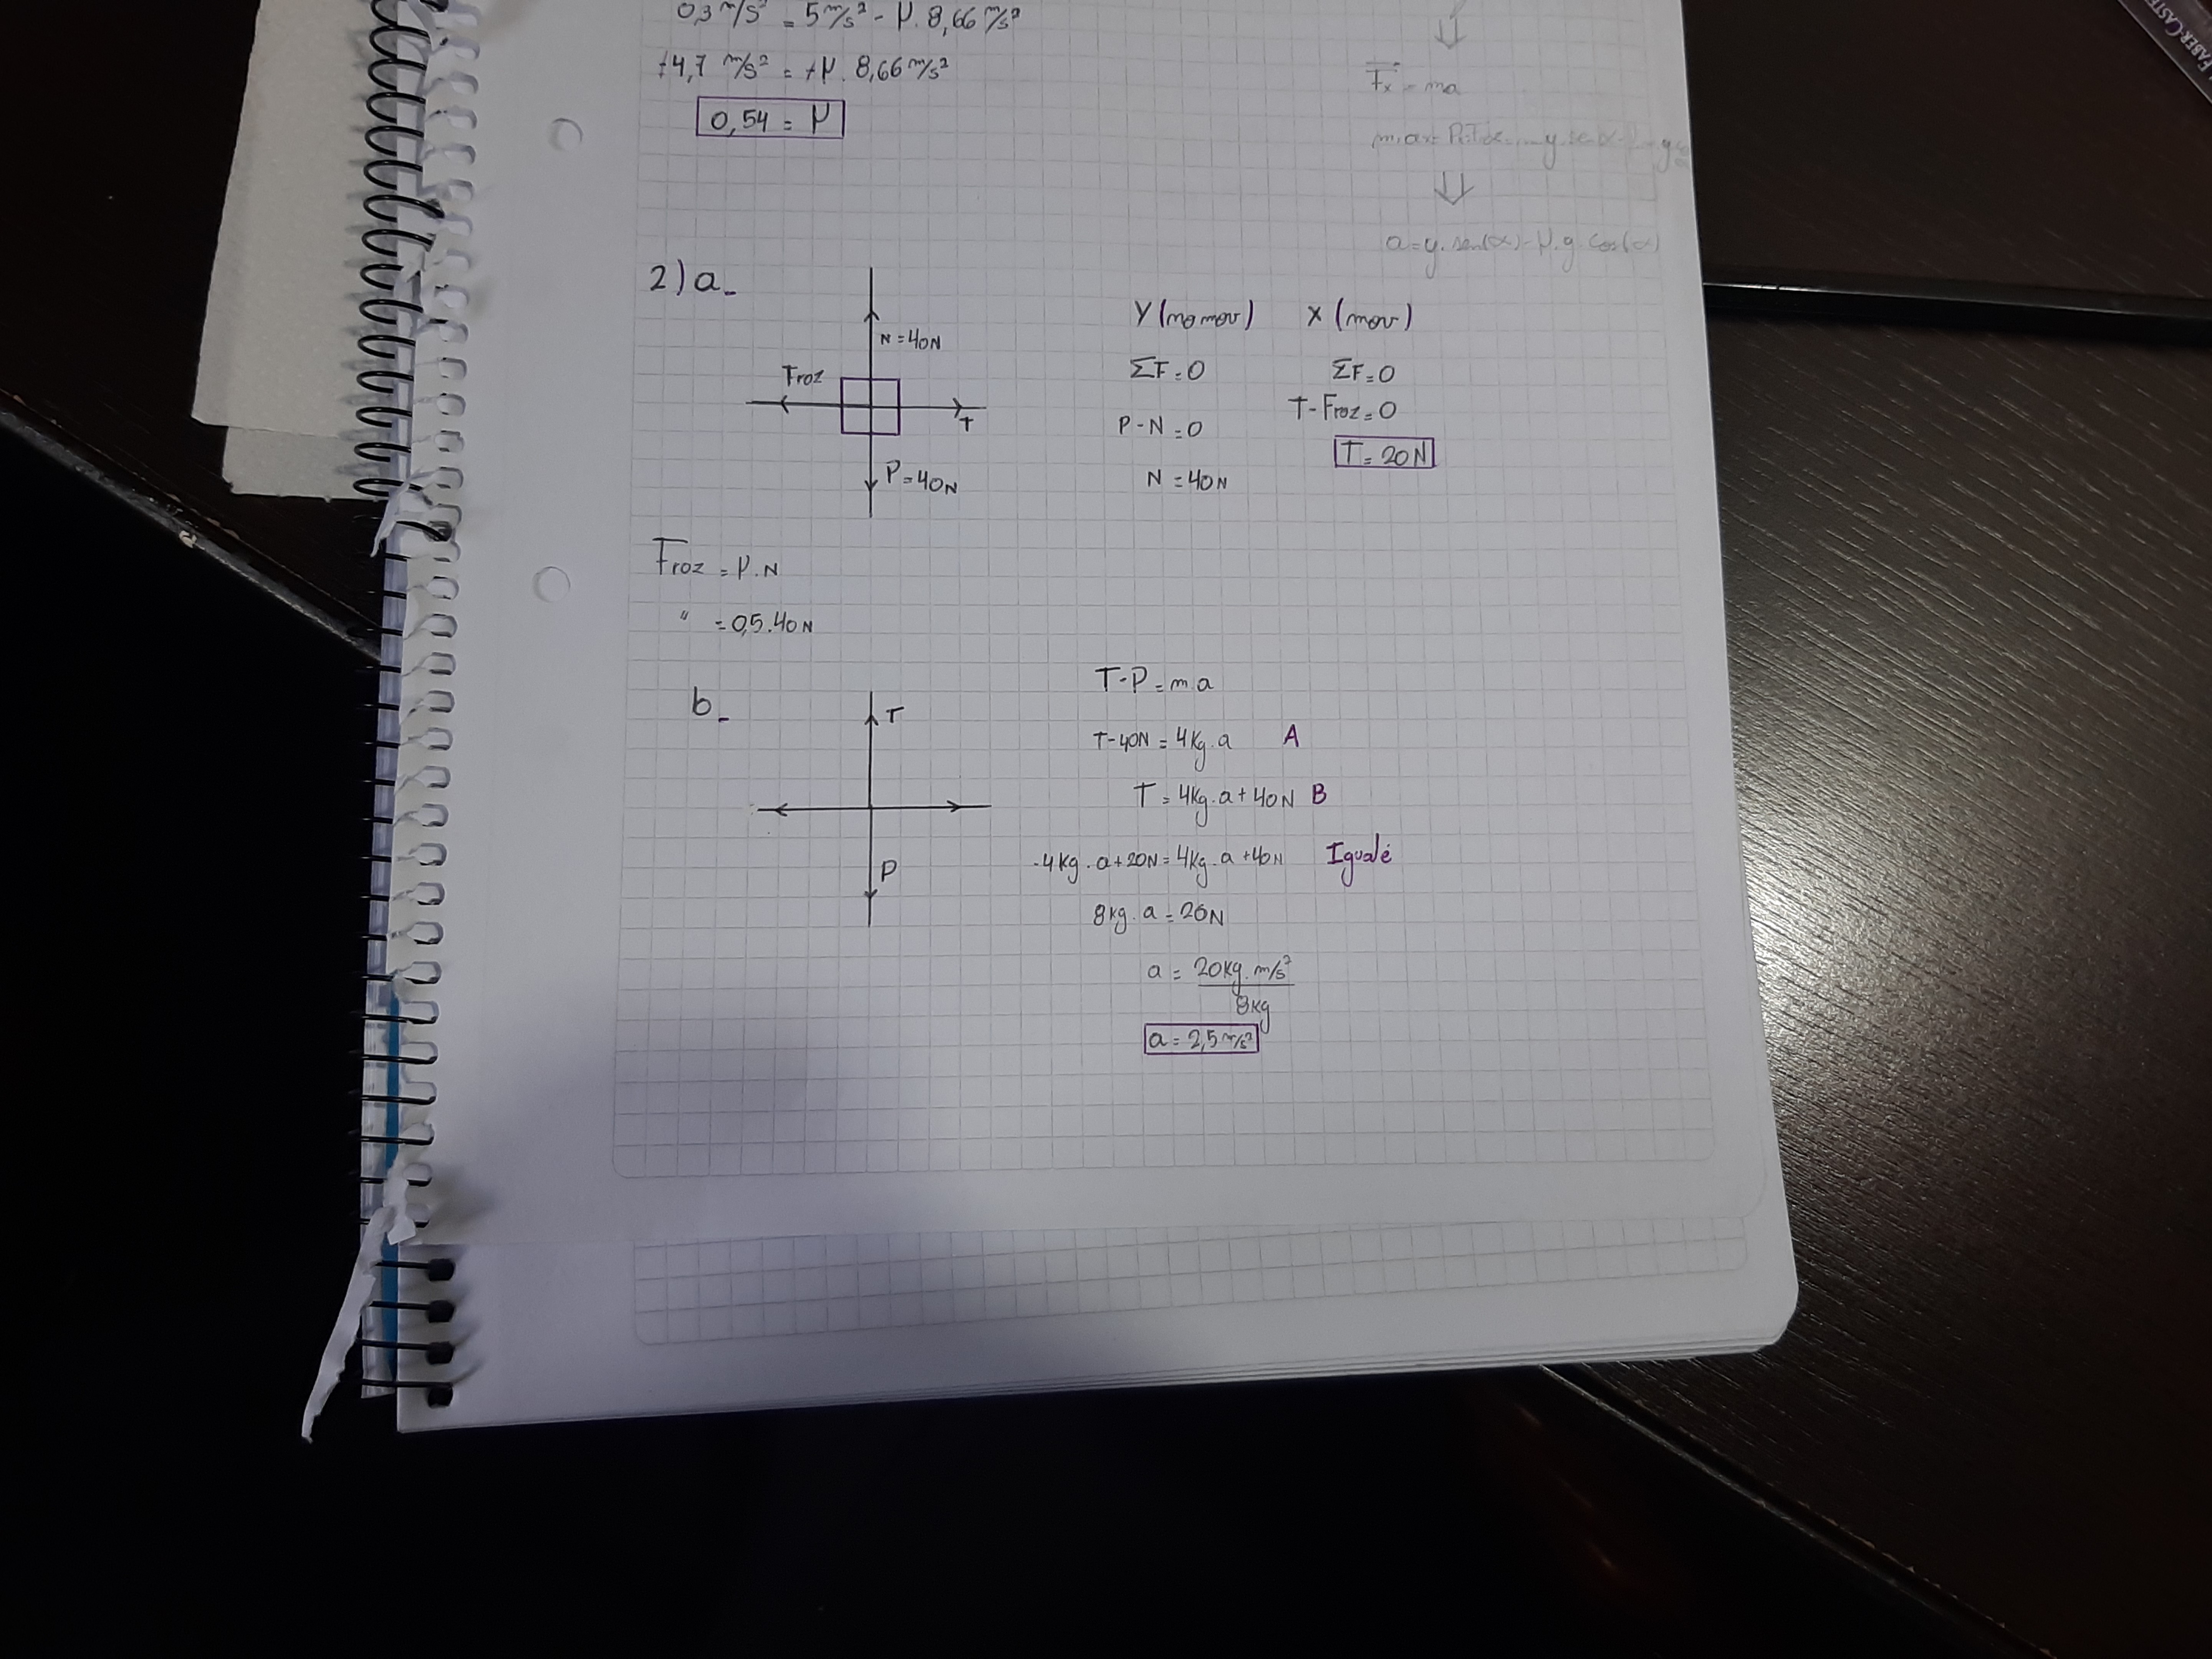 0,3 m/s² = 5 m/s² - μ. 8,66 m/s²
+4,7 m/s² = +μ. 8,66 m/s²
0,54 = μ
Fx = ma
⇓
a=g.sen(α)-μ.g.cos(α)
2) a_
N = 40N
Froz
T
P = 40N
Y (no mov)
ΣF = 0
P - N = 0
N = 40N
X (mov)
ΣF = 0
T - Froz = 0
T = 20N
Froz = μ.N
" = 0,5.40N
b_
T
P
T - P = m.a
T - 40N = 4Kg.a A
T = 4Kg.a + 40N B
-4Kg.a + 20N = 4Kg.a + 40N Igualé
8kg.a = 20N
a = 20kg.m/s²
8kg
a = 2,5 m/s²
FABER-CASTE